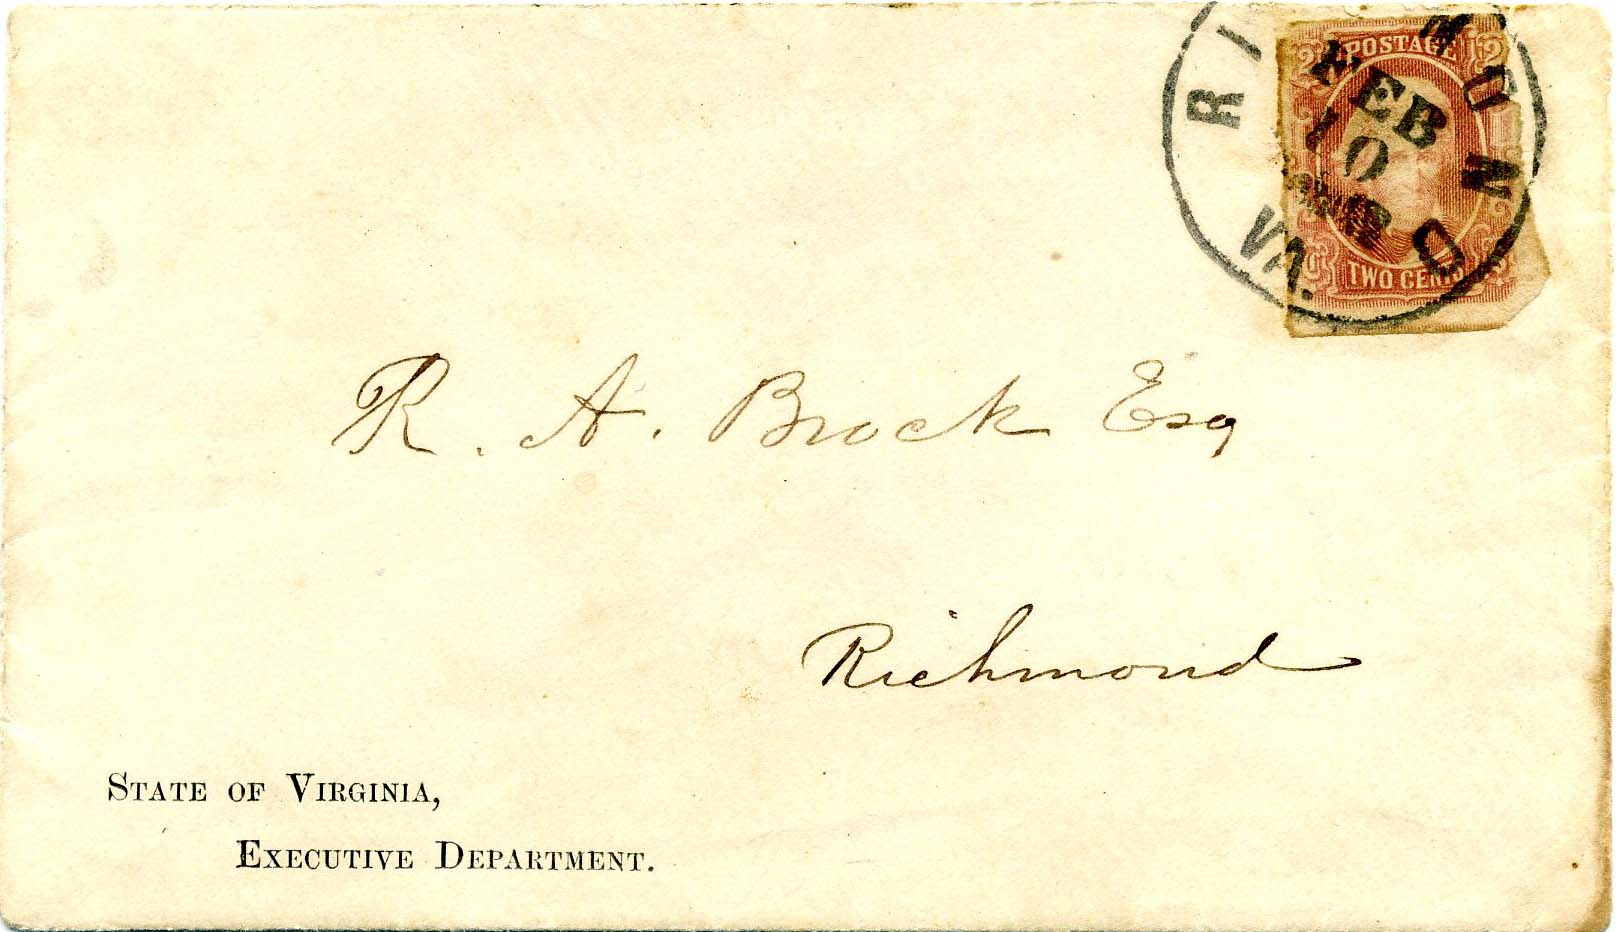 RICHMOND
VA.
FEB
10
POSTAGE
2 2
TWO CENTS
R. A. Brock Esq
Richmond
STATE OF VIRGINIA,
EXECUTIVE DEPARTMENT.